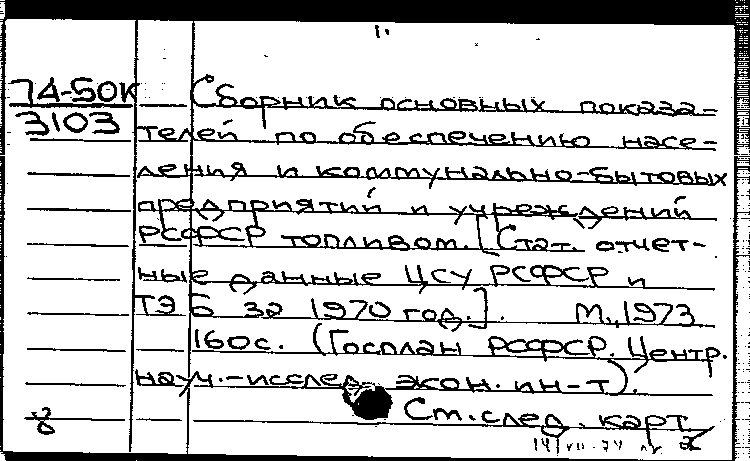 74-50К Сборник основных показа-
3103 телей по обеспечению насе-
ления и коммунально-бытовых
предприятий и учреждений
РСФСР топливом. [Стат. отчет-
ные данные ЦСУ РСФСР и
ТЭБ за 1970 год.]. М., 1973
160с. (Госплан РСФСР. Центр.
науч.-исслед. экон. ин-т).
См. след. карт.